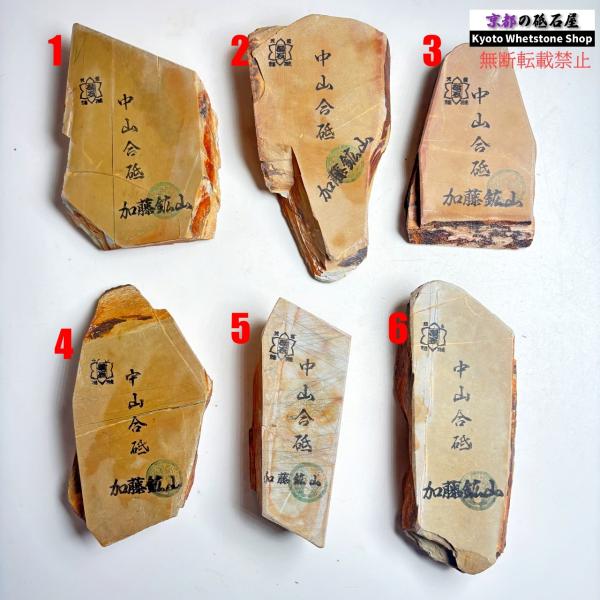 京都の砥石屋
Kyoto Whetstone Shop
無断転載禁止
1
中山合砥
加藤鉱山
2
中山合砥
加藤鉱山
3
中山合砥
加藤鉱山
4
中山合砥
加藤鉱山
5
中山合砥
加藤鉱山
6
中山合砥
加藤鉱山